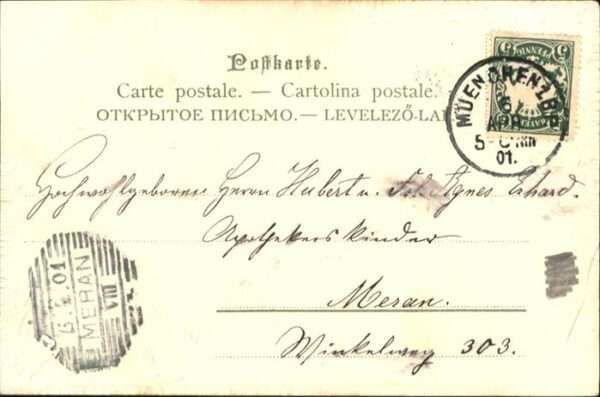 Postkarte.
Carte postale. — Cartolina postale.
ОТКРЫТОЕ ПИСЬМО. — LEVELEZŐ-LA
5 5
MUENCHEN
APR
01.
Hochwohlgeboren Herrn Hubert u. Frl. Agnes Erhard.
Apothekerskinder
Meran.
Winkelweg 303.
01
MERAN
VIII